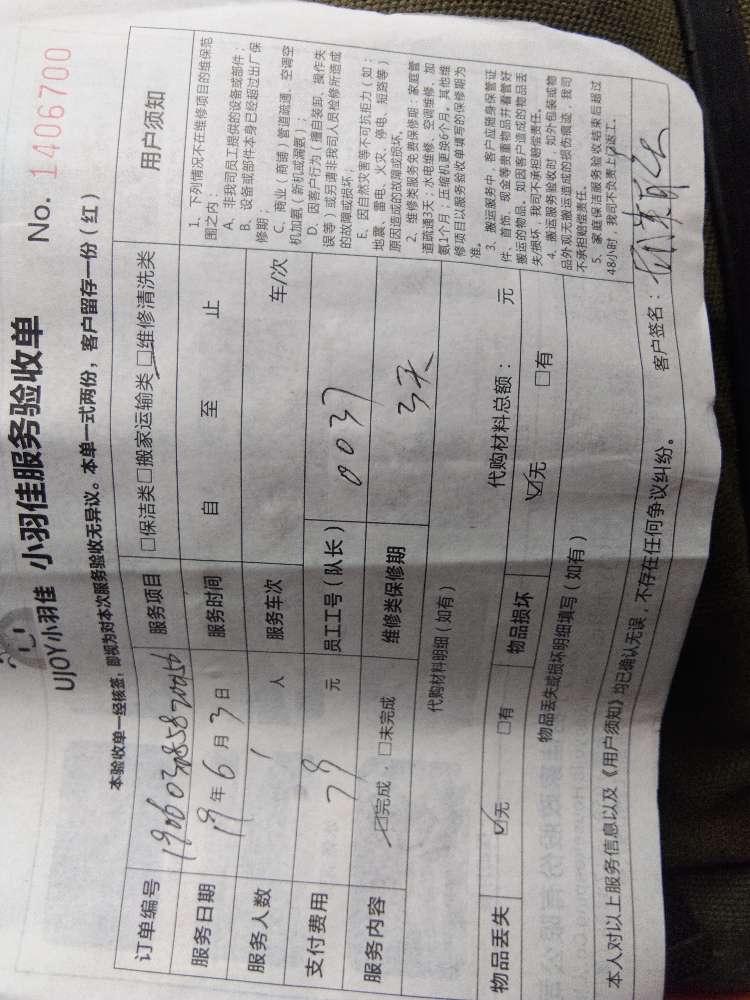 UJOY小羽佳 小羽佳服务验收单 No. 1406700
本验收单一经核签，即视为对本次服务验收无异议。本单一式两份，客户留存一份（红）
订单编号
服务项目 □保洁类□搬家运输类☑维修清洗类
服务日期 19年6月3日
服务时间 自 至 止
服务人数 1人
服务车次 车/次
支付费用 79 元
员工工号（队长） 0037
服务内容 ☑完成 □未完成
维修类保修期 3天
代购材料明细（如有） 代购材料总额： 元
物品丢失 ☑无 □有
物品损坏 ☑无 □有
物品丢失或损坏明细填写（如有）
用户须知
1、下列情况不在维修项目的维保范
围之内：
A、非我司员工提供的设备或部件；
B、设备或部件本身已经超过出厂保
修期；
C、商业（商铺）管道疏通、空调空
机加氨（新机或漏氨）；
D、因客户行为（擅自装卸、操作失
误等）或另请非我司人员检修所造成
的故障或损坏；
E、因自然灾害等不可抗拒力（如：
地震、雷电、火灾、停电、短路等）
原因造成的故障或损坏。
2、维修类服务免费保修期：家庭管
道疏通3天；水电维修、空调维修、加
氨1个月；压缩机更换6个月。其他维
修项目以服务验收单填写的保修期为
准。
3、搬运服务中，客户应随身保管证
件、首饰、现金等贵重物品并看管好
搬运的物品。如因客户造成的物品丢
失/损坏，我司不承担赔偿责任。
4、搬运服务验收时，如外包装或物
品外观无搬运造成的损伤痕迹，我司
不承担赔偿责任。
5、家庭保洁服务验收结束后超过
48小时，我司不负责上门返工。
本人对以上服务信息以及《用户须知》均已确认无误，不存在任何争议纠纷。 客户签名：